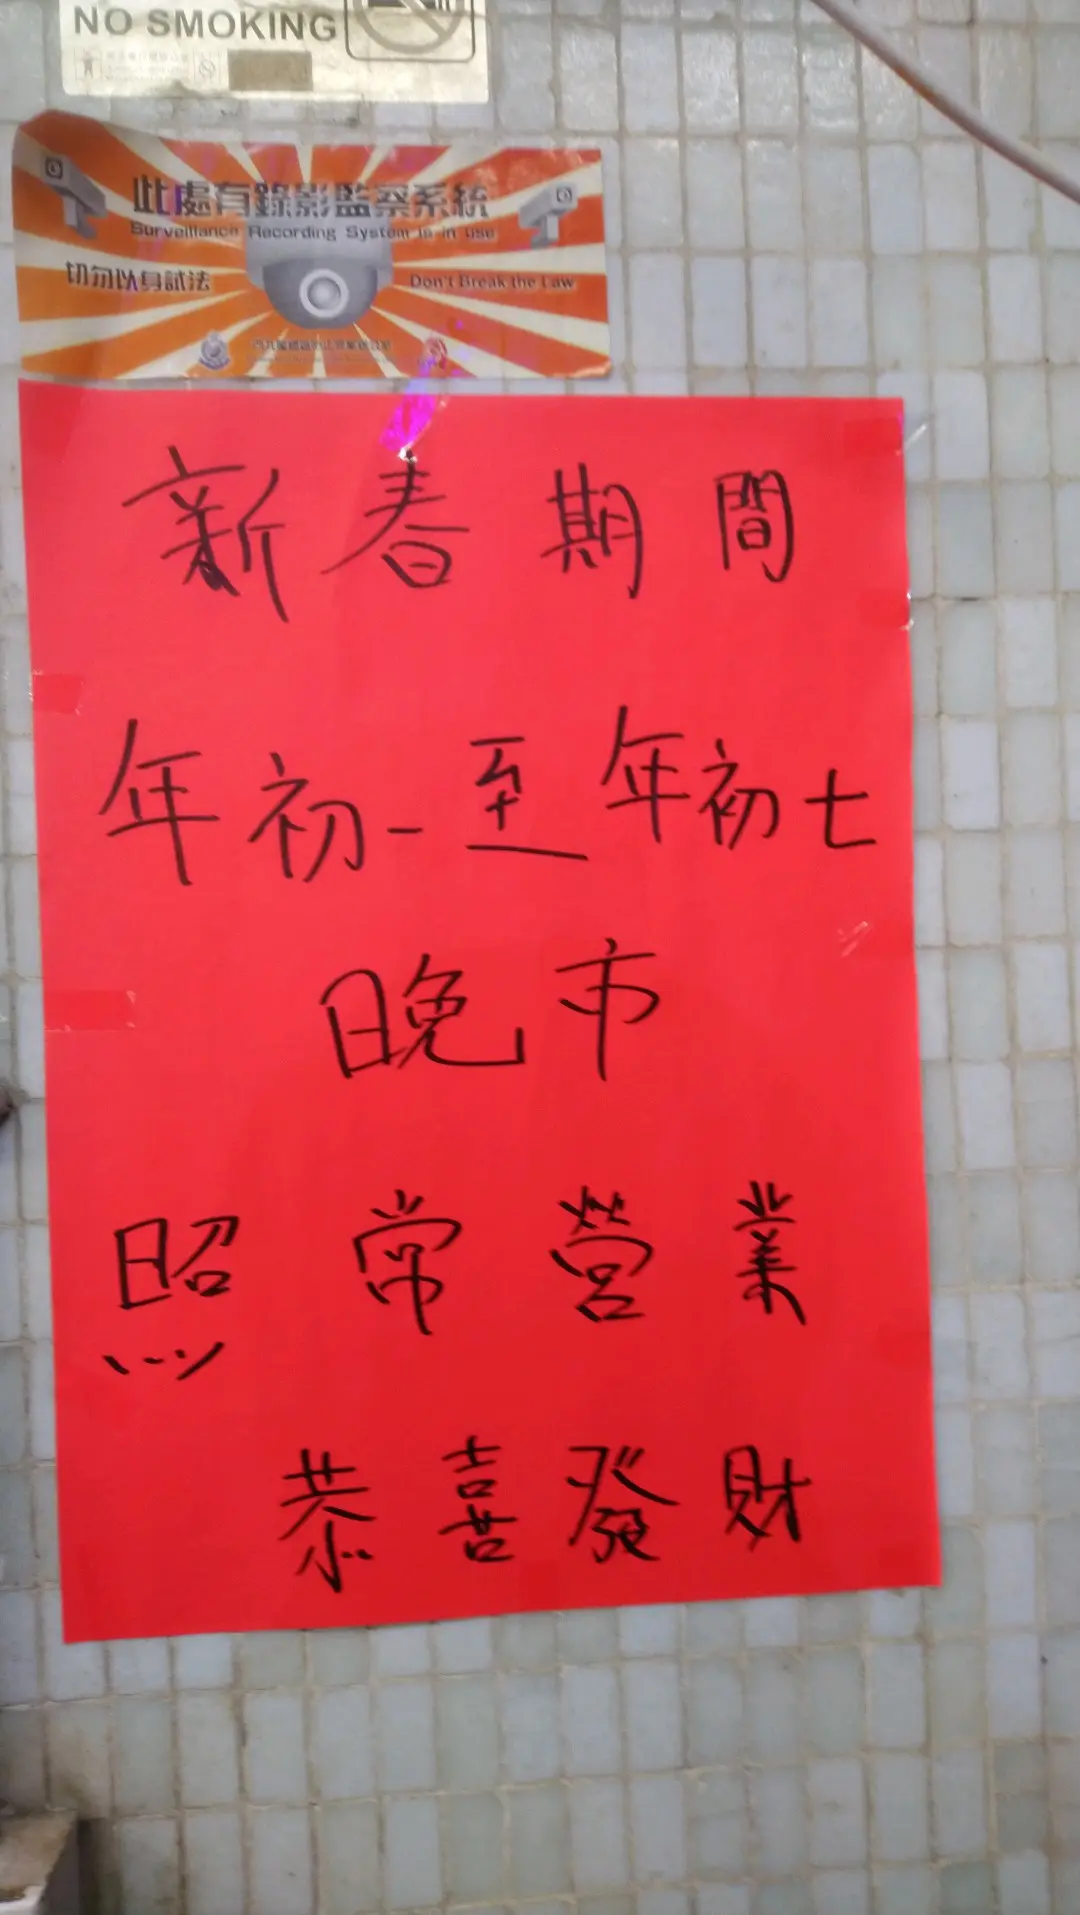 NO SMOKING
此處有錄影監察系統
Surveillance Recording System is in use
切勿以身試法
Don't Break the Law
新春期間
年初一至年初七
晚市
照常營業
恭喜發財